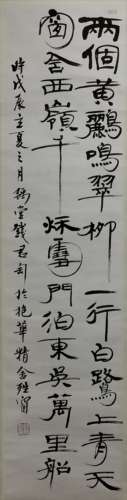 兩個黃鸝鳴翠柳一行白鷺上青天
窗含西嶺千秌雪門泊東吳萬里船
時戊辰立夏之月 錢君匋於抱華精舍